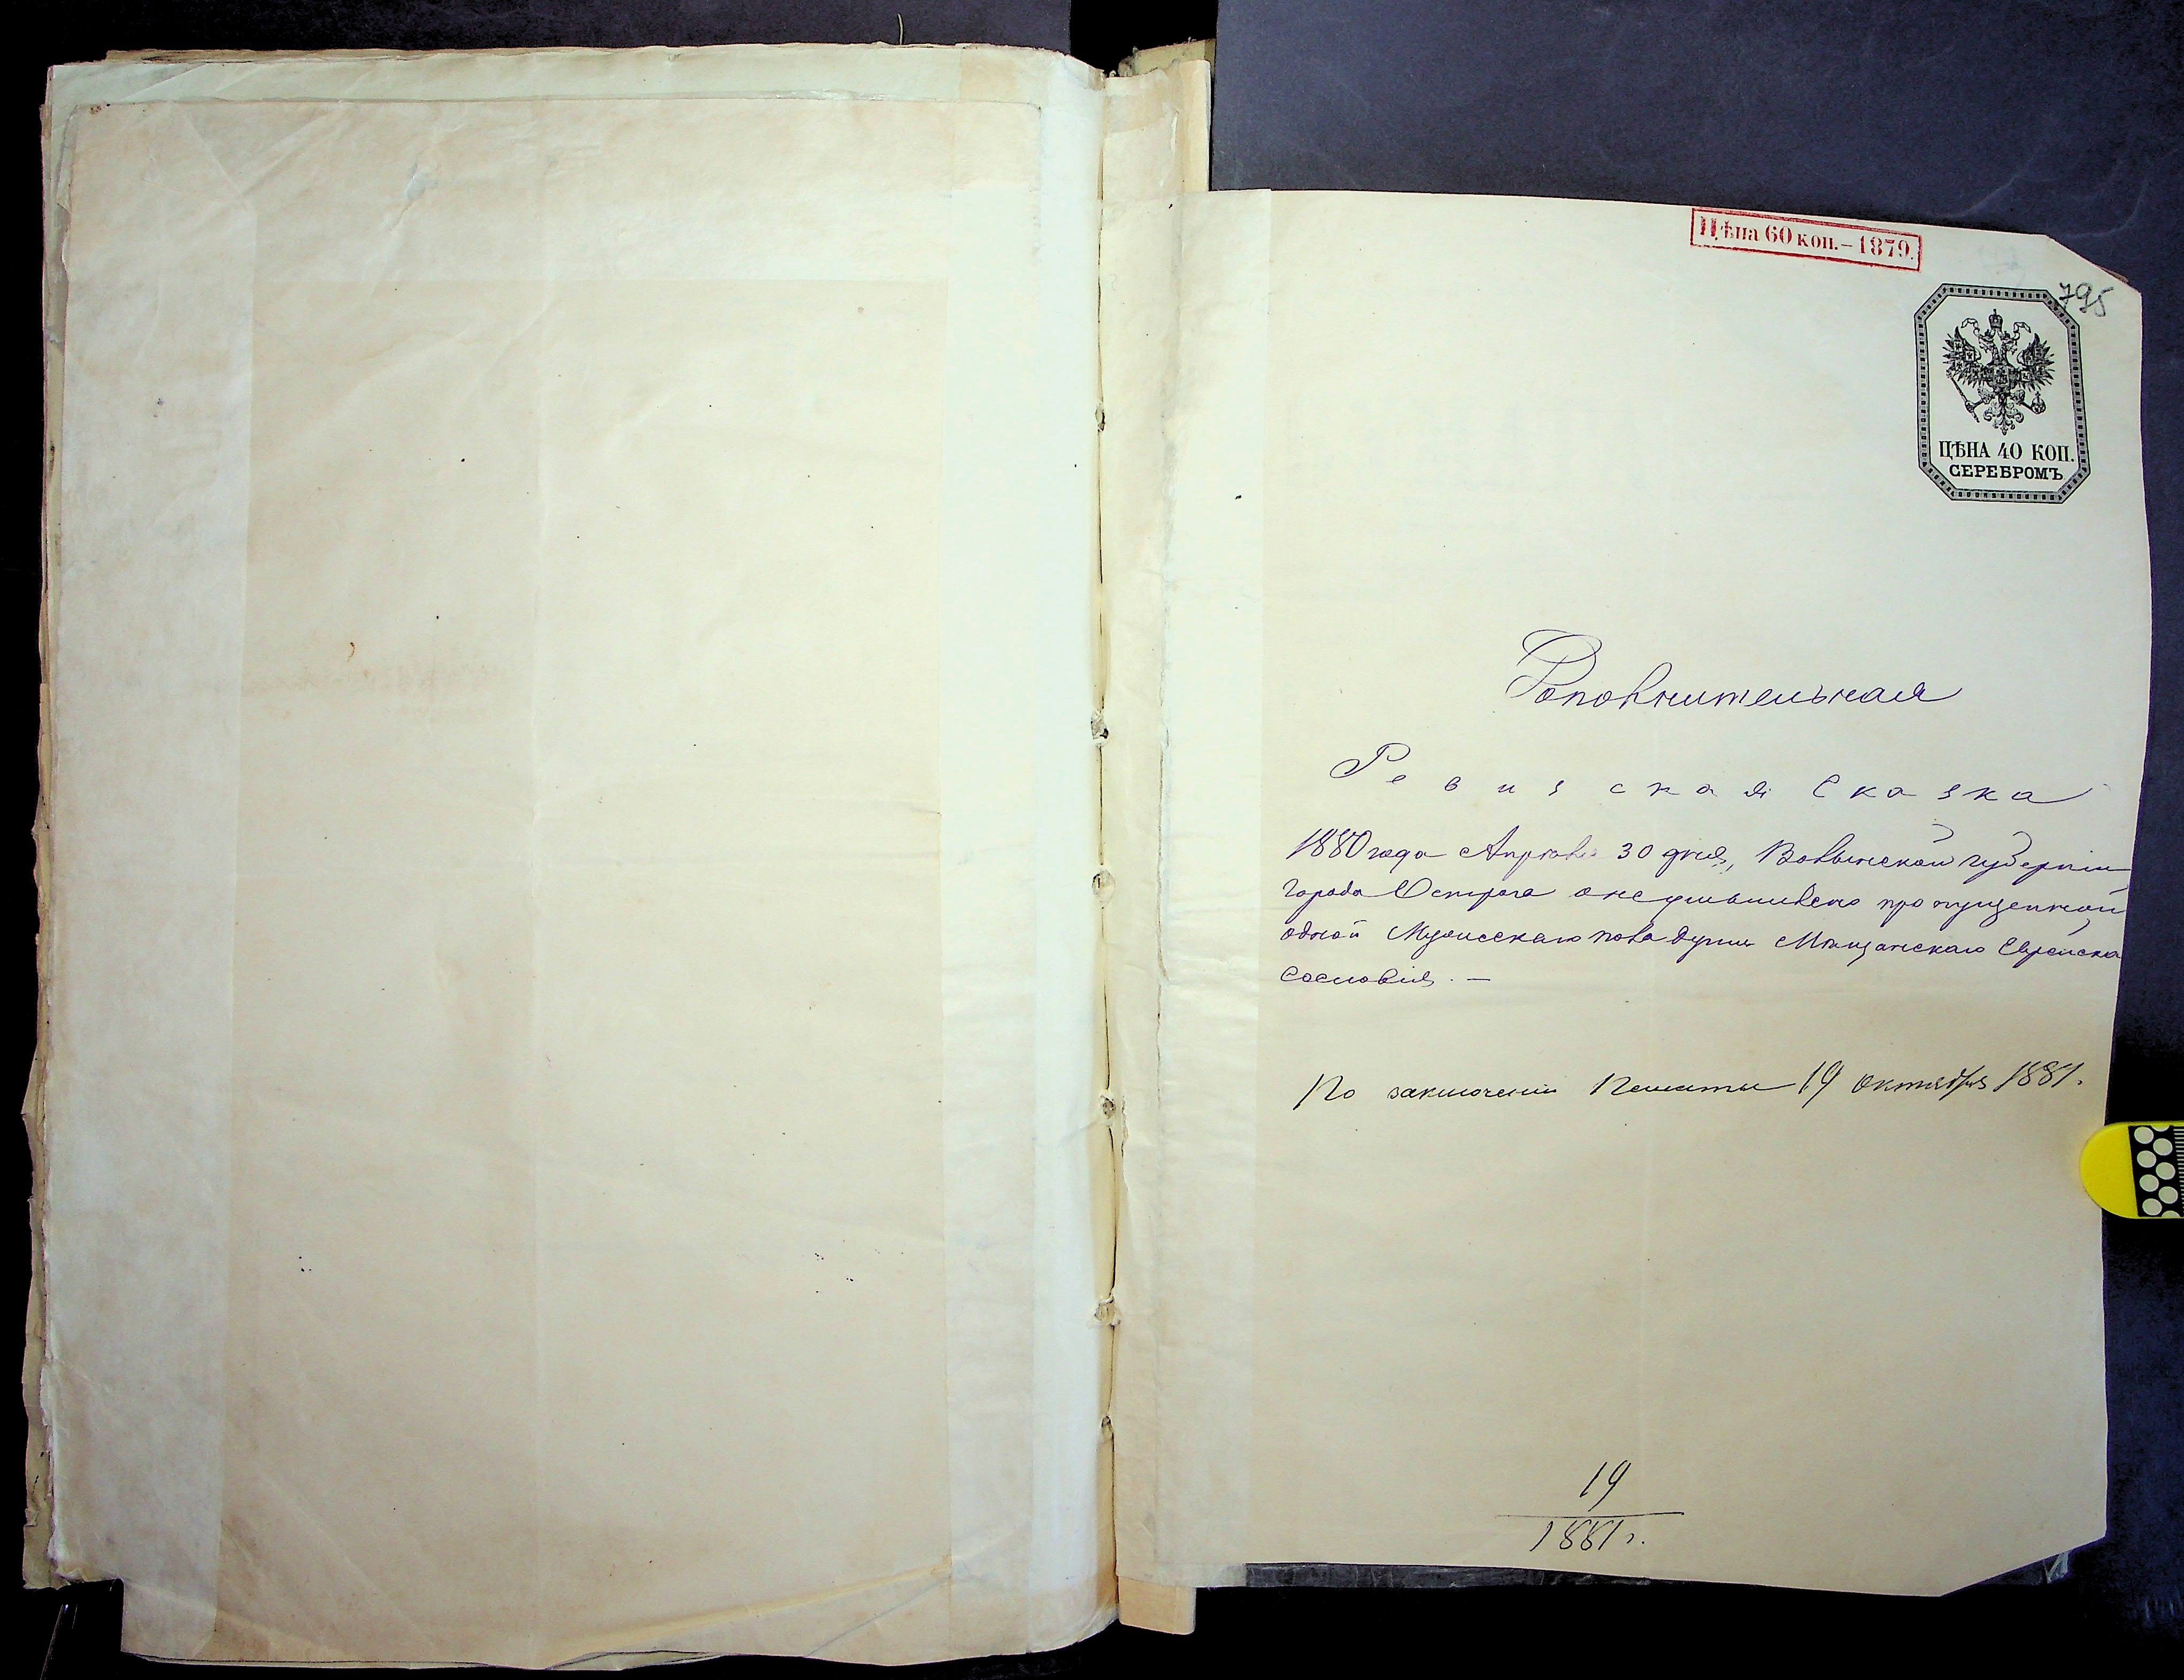 Цѣна 60 коп.–1879.
795
ЦѢНА 40 КОП.
СЕРЕБРОМЪ
Дополнительная
Ревизская Сказка
1880 года Апрѣля 30 дня, Волынской губерніи
города Острога о неумышленно пропущенной
одной Мужескаго пола душѣ Мѣщанскаго Еврейска
сословія. —
По заключенію Палаты 19 октября 1881.
19
1881 г.